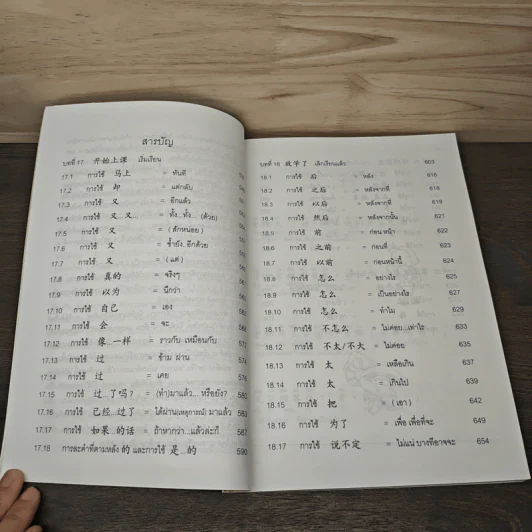 สารบัญ
บทที่ 17 开始上课 เริ่มเรียน
17.1 การใช้ 马上 = ทันที
17.2 การใช้ 却 = แต่กลับ
17.3 การใช้ 又 = อีกแล้ว
17.4 การใช้ 又...又... = ทั้ง...ทั้ง... (ด้วย)
17.5 การใช้ 又 = (สักหน่อย)
17.6 การใช้ 又 = ซ้ำยัง..อีกด้วย
17.7 การใช้ 又 = (แต่)
17.8 การใช้ 真的 = จริงๆ
17.9 การใช้ 以为 = นึกว่า
17.10 การใช้ 自己 = เอง
17.11 การใช้ 会 = จะ
17.12 การใช้ 像...一样 = ราวกับ เหมือนกับ
17.13 การใช้ 过 = ข้าม ผ่าน
17.14 การใช้ 过 = เคย
17.15 การใช้ 过...了吗? = (ทำ)มาแล้ว... หรือยัง? 582
17.16 การใช้ 已经...过了 = ได้ผ่าน(เหตุการณ์) มาแล้ว 583
17.17 การใช้ 如果...的话 = ถ้าหากว่า...แล้วล่ะก็ 587
17.18 การละคำที่ตามหลัง 的 และการใช้ 是...的 590
บทที่ 18 放学了 เลิกเรียนแล้ว 603
18.1 การใช้ 后 = หลัง
18.2 การใช้ 之后 = หลังจากที่
18.3 การใช้ 以后 = หลังจากที่ 619
18.4 การใช้ 然后 = หลังจากนั้น 621
18.5 การใช้ 前 = ก่อน หน้า
18.6 การใช้ 之前 = ก่อนที่ 623
18.7 การใช้ 以前 = ก่อนหน้านี้ 624
18.8 การใช้ 怎么 = อย่างไร 625
18.9 การใช้ 怎么 = เป็นอย่างไร 627
18.10 การใช้ 怎么 = ทำไม 629
18.11 การใช้ 不怎么 = ไม่ค่อย...เท่าไร 633
18.12 การใช้ 不太/不大 = ไม่ค่อย 635
18.13 การใช้ 太 = เหลือเกิน 637
18.14 การใช้ 太 = เกินไป 639
18.15 การใช้ 把 = (เอา) 642
18.16 การใช้ 为了 = เพื่อ เพื่อที่จะ 649
18.17 การใช้ 说不定 = ไม่แน่ บางทีอาจจะ 654